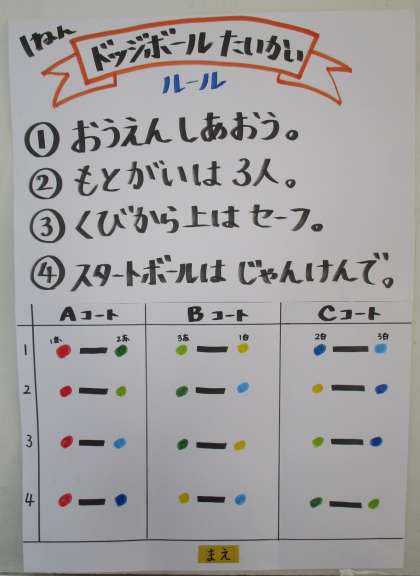 1ねん
ドッジボールたいかい
ルール
① おうえんしあおう。
② もとがいは3人。
③ くびから上はセーフ。
④ スタートボールはじゃんけんで。
Aコート Bコート Cコート
1 1赤 2赤 3赤 1白 2白 3白
2
3
4
まえ